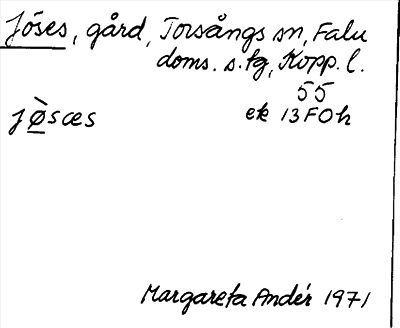 Jöses, gård, Torsångs sn, Falu
doms. s. tg, Kopp. l.
55
jø̀sæs ek 13 F O h
Margareta Andér 1971